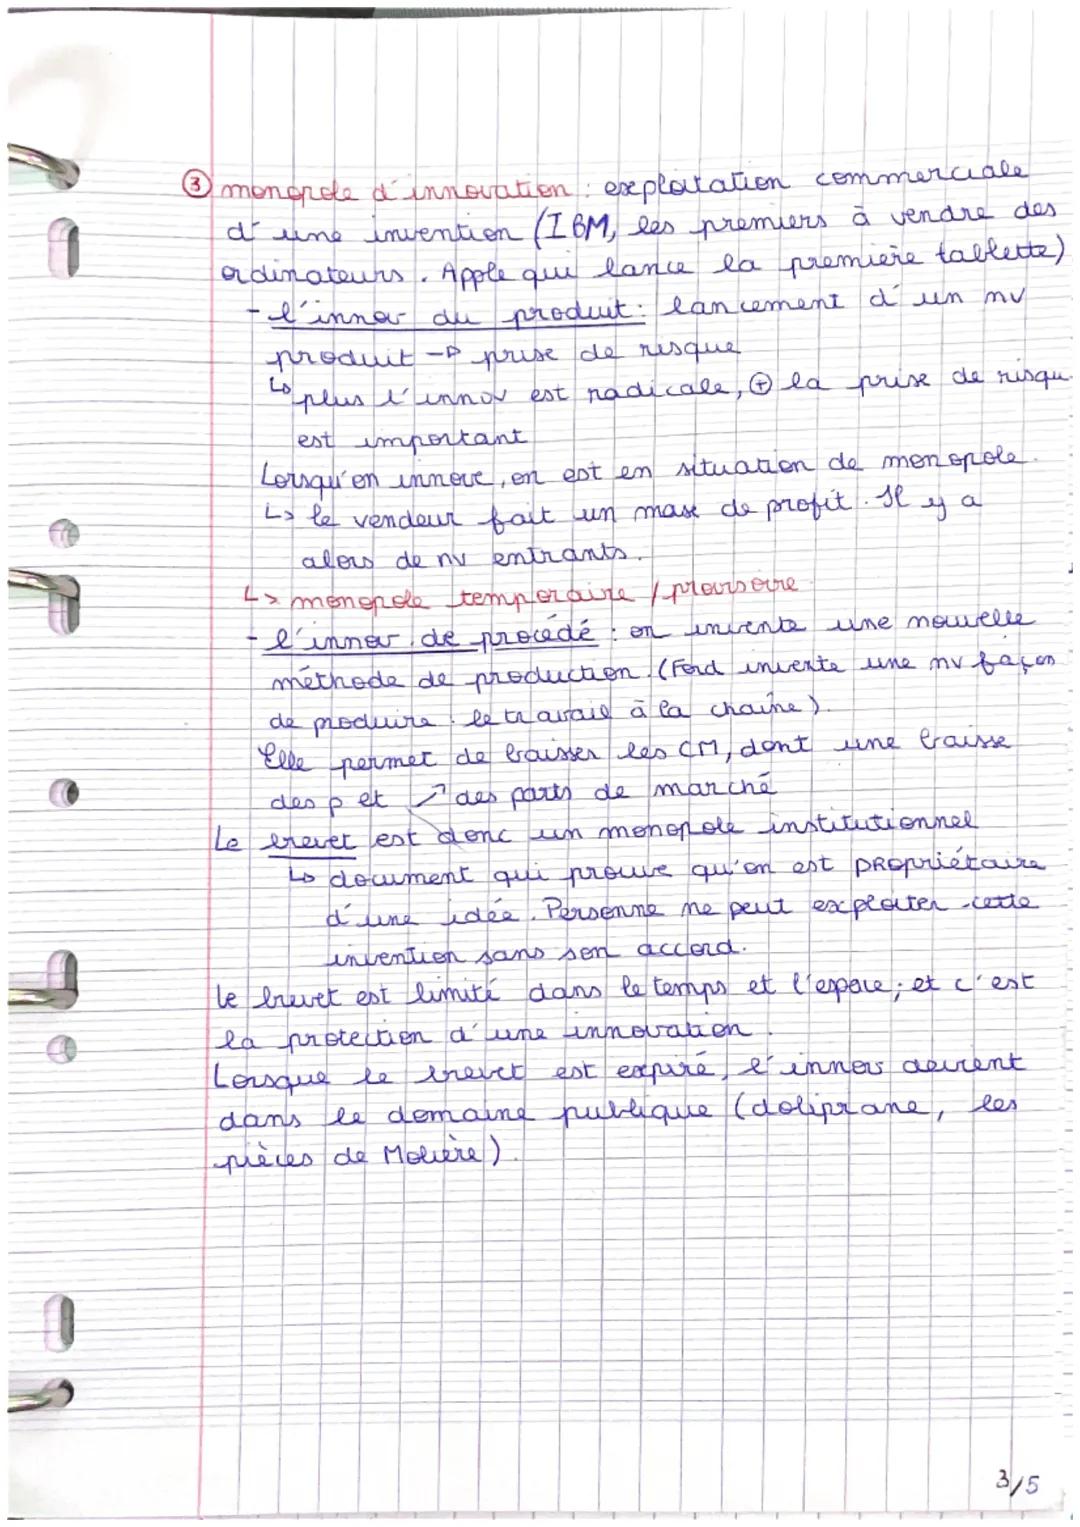 ③ monopole d'innovation : exploitation commerciale
d'une invention (IBM, les premiers à vendre des
ordinateurs. Apple qui lance la première tablette)
- l'innov du produit : lancement d'un nv
produit → prise de risque
↳ plus l'innov est radicale, ⊕ la prise de risqu
est important
Lorsqu'on innove, on est en situation de monopole.
↳ le vendeur fait un max de profit. Il y a
alors de nv entrants.
↳ monopole temporaire / provisoire.
- l'innov. de procédé : on invente une nouvelle
méthode de production. (Ford invente une nv façon
de produire : le travail à la chaîne).
Elle permet de baisser les CM, dont une baisse
des p et ↗ des parts de marché
Le brevet est donc un monopole institutionnel
↳ document qui prouve qu'on est propriétaire
d'une idée. Personne ne peut exploiter cette
invention sans son accord.
Le brevet est limité dans le temps et l'espace ; et c'est
la protection d'une innovation.
Lorsque le brevet est expiré, l'innov devient
dans le domaine publique (doliprane, les
pièces de Molière).
3/5